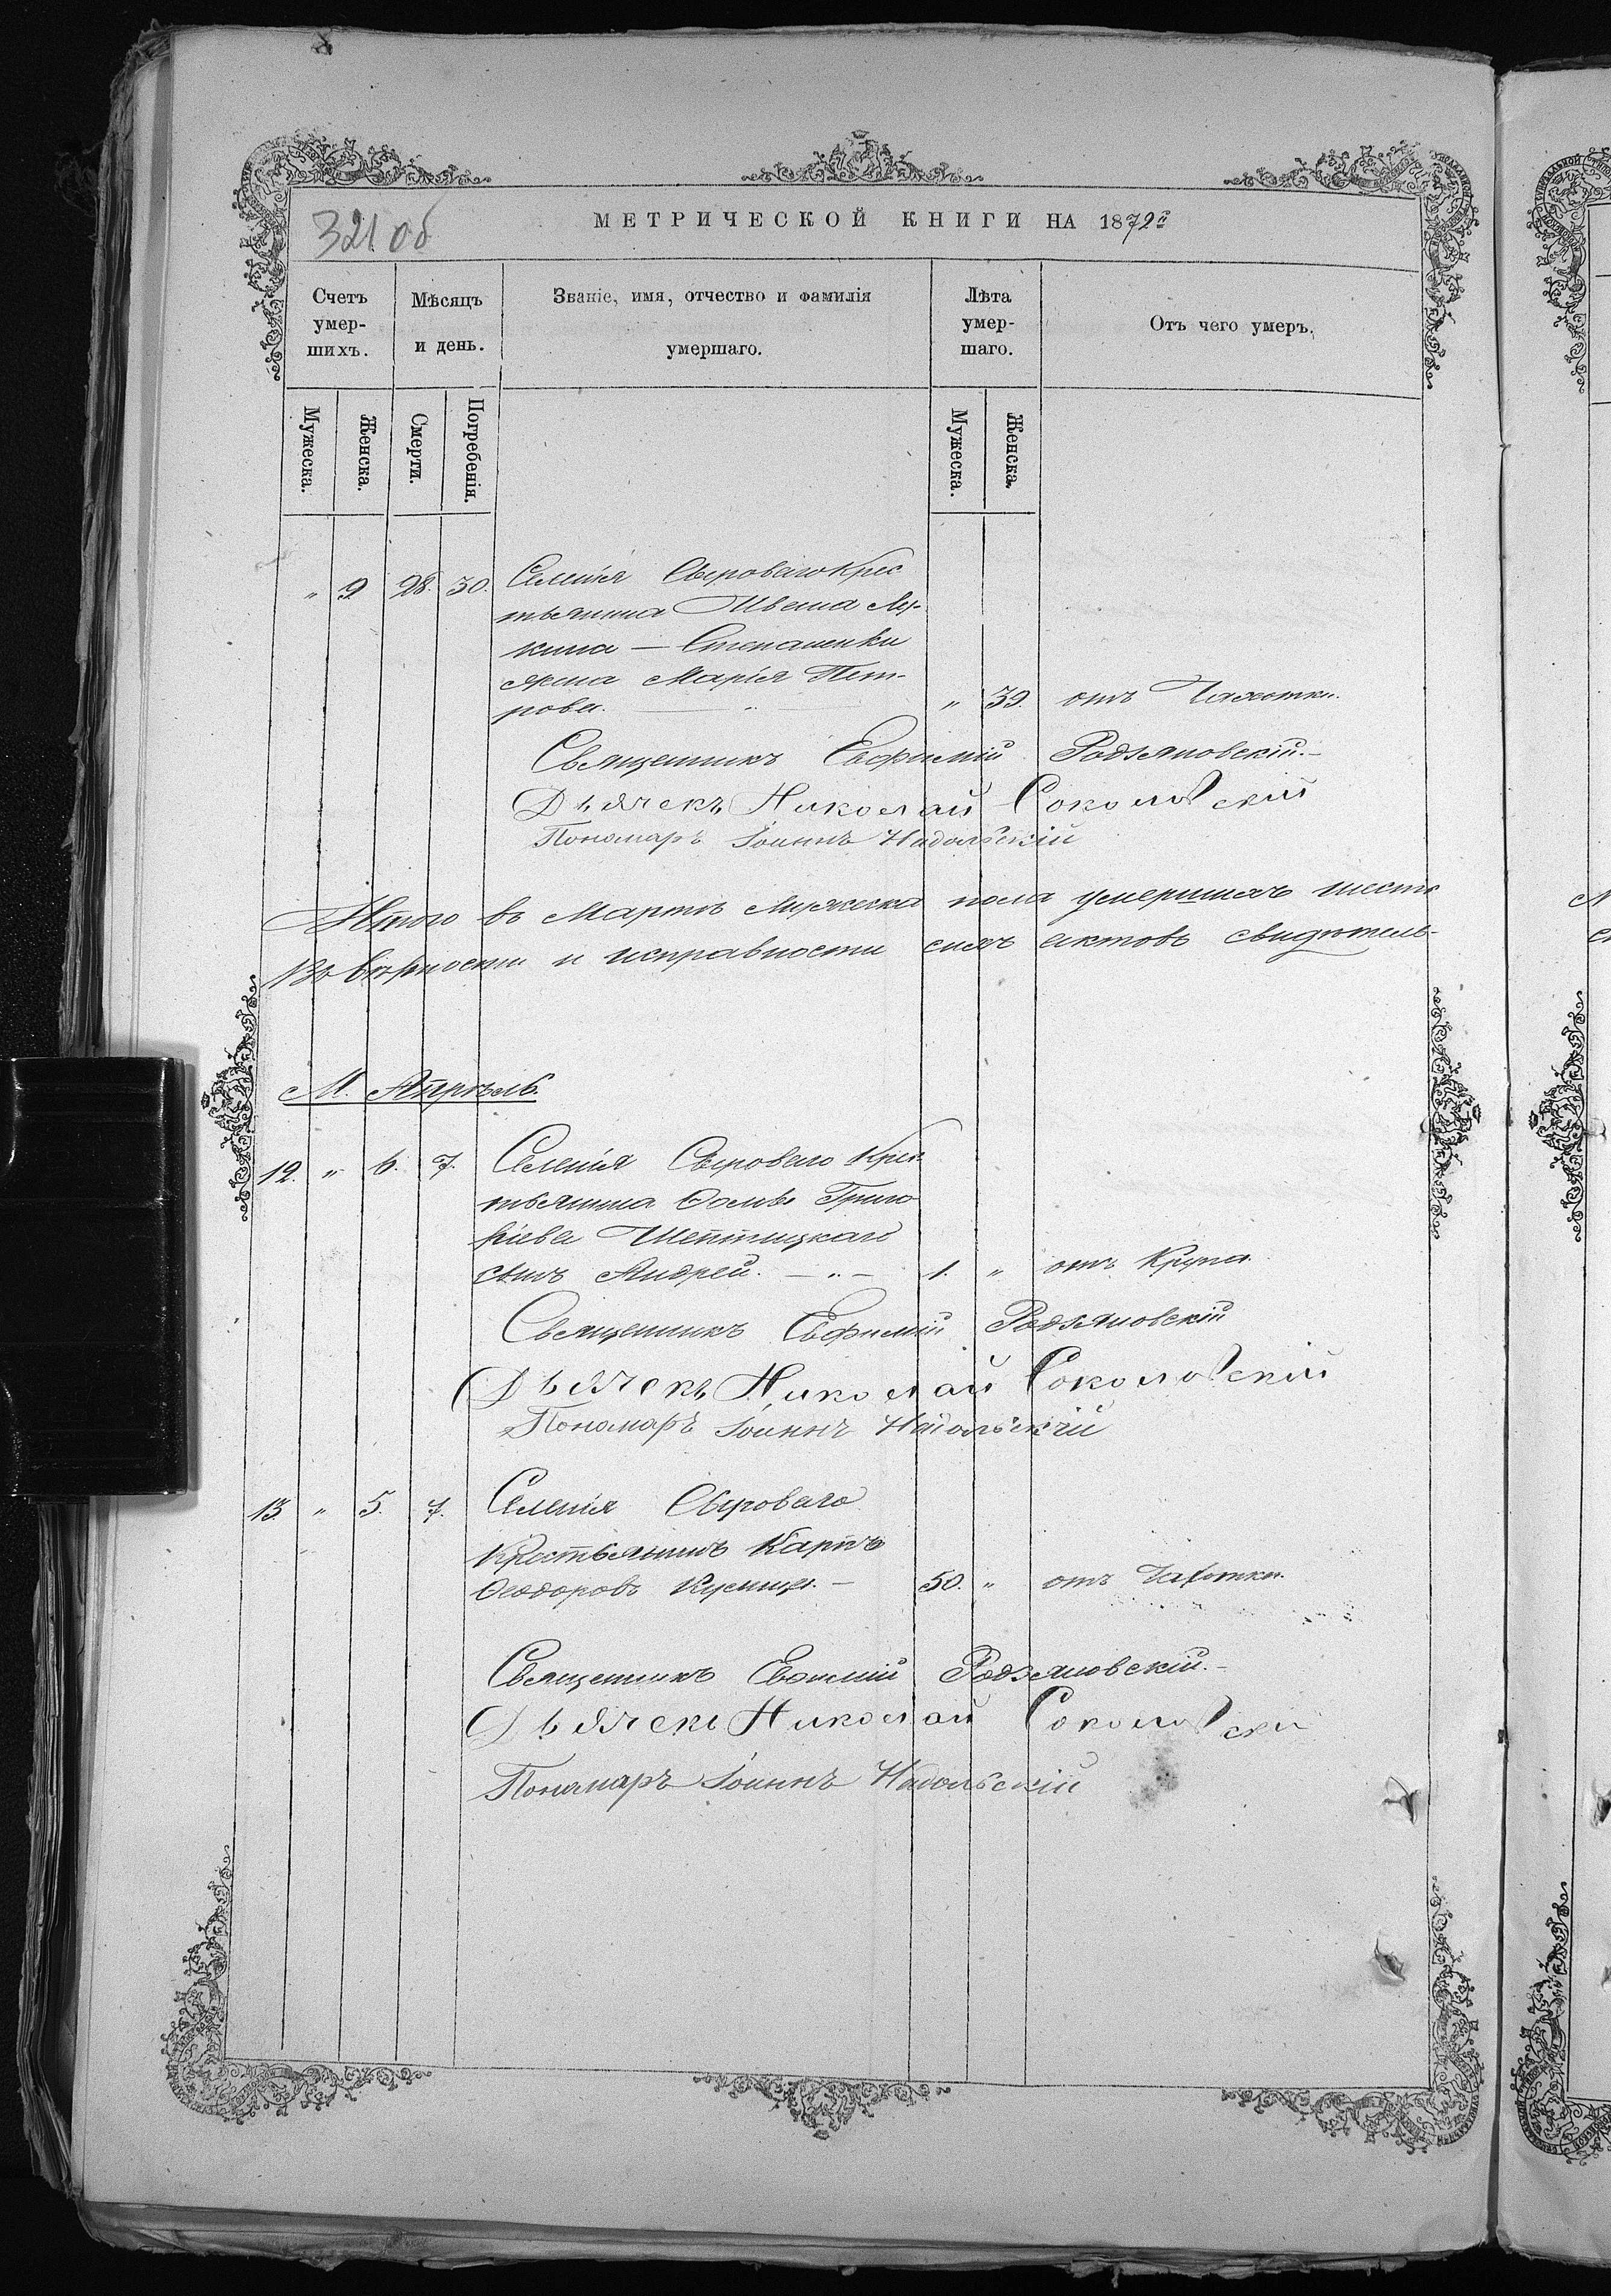 321 об
МЕТРИЧЕСКОЙ КНИГИ НА 1872й
Счетъ умер-шихъ.
Мѣсяцъ и день.
Званіе, имя, отчество и фамилія умершаго.
Лѣта умер-шаго.
Отъ чего умеръ.
Мужеска.
Женска.
Смерти.
Погребенія.
Мужеска.
Женска.
" 9 28. 30. Селенія Сыроваго Крес
тьянина Ивана Лу-
кина — Степаненки
жена Марія Пет-
рова. " 39. отъ Чахотки.
Священникъ Евфимій Родзяновскій.
Дьячекъ Николай Соколовскій
Пономаръ Іоаннъ Надольскій
Итого въ Мартѣ Мужеска пола умершихъ шесть
Въ вѣрности и исправности сихъ актовъ свидѣтель-
М. Апрѣль.
12. " 6. 7. Селенія Сыроваго Крес
тьянина Ѳомы Григо
ріева Шептицкаго
сынъ Андрей. — " — 1. " отъ Крупа.
Священникъ Евфимій Родзяновскій
Дьячекъ Николай Соколовскій
Пономаръ Іоаннъ Надольскій
13. " 5. 7. Селенія Сыроваго
Крестьянинъ Карпъ
Ѳеодоровъ — 50. " отъ Чахотки.
Священникъ Евѳимій Родзяновскій.
Дьячекъ Николай Соколовскій
Пономаръ Іоаннъ Надольскій